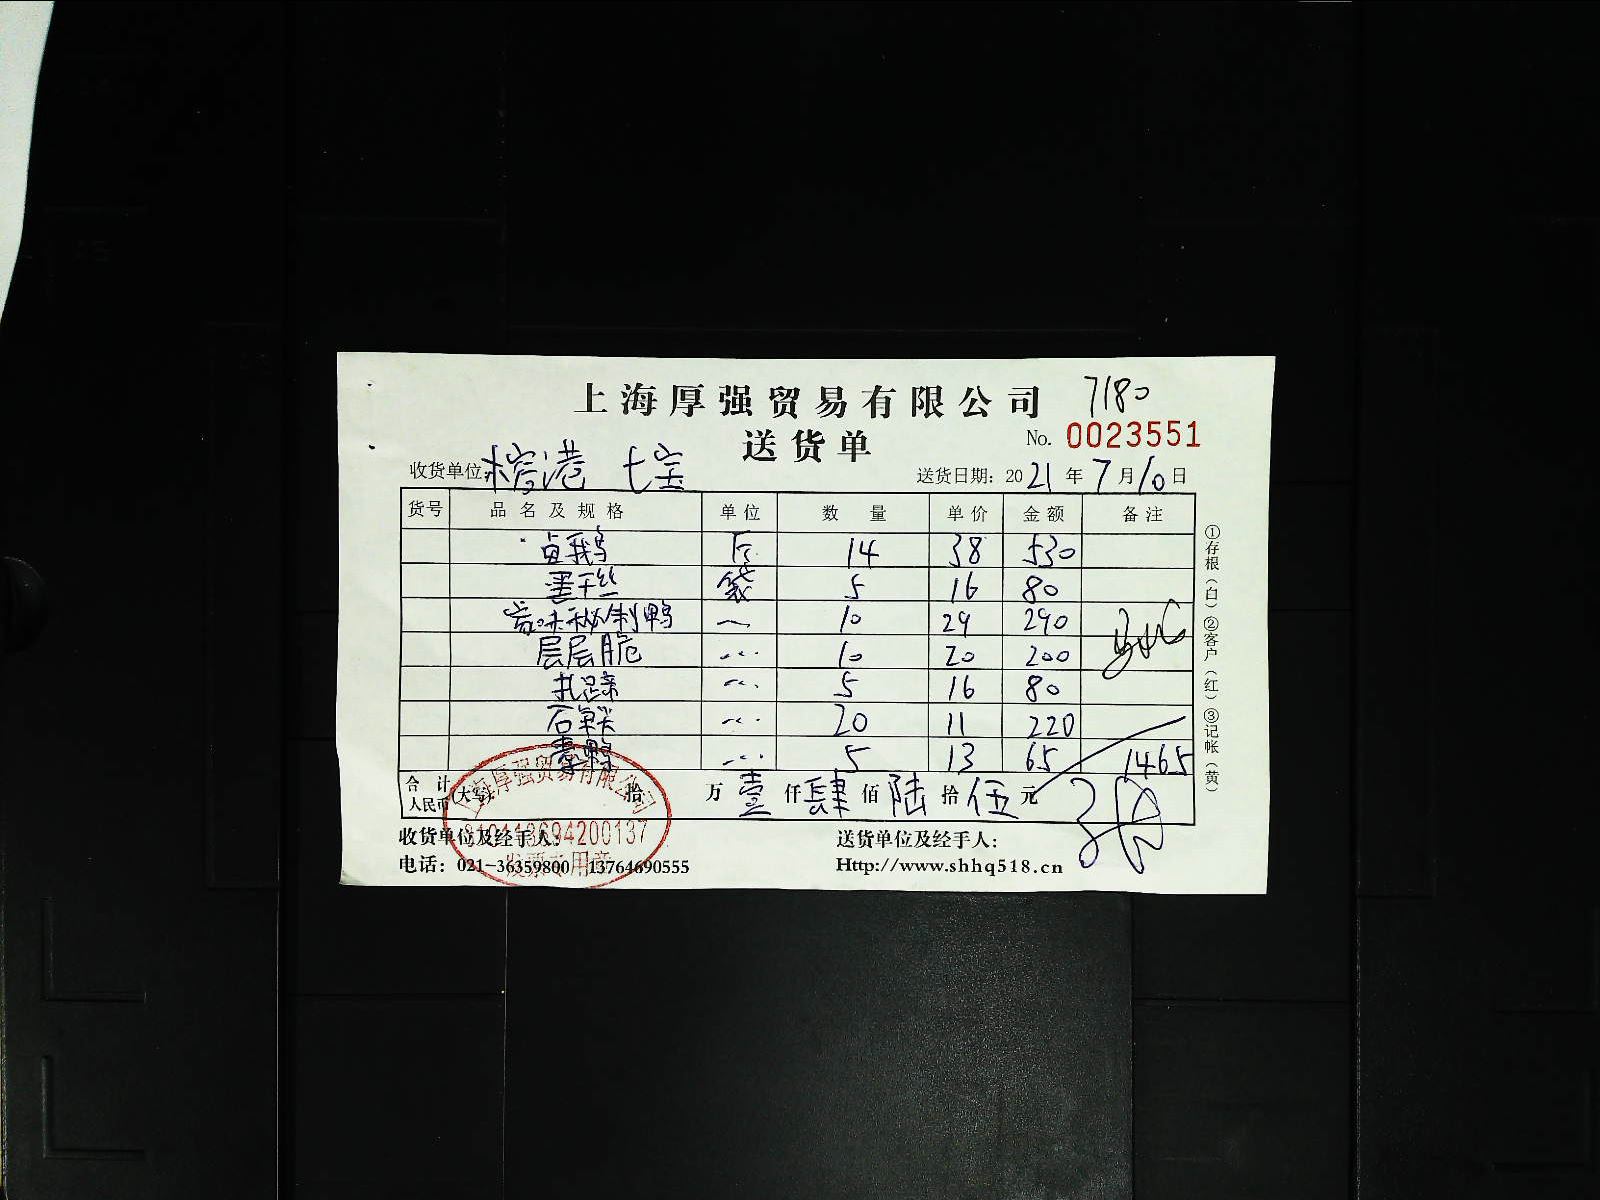 上海厚强贸易有限公司 7180
送货单 No. 0023551
收货单位: 榕港 七宝 送货日期: 2021年7月10日
货号 品名及规格 单位 数量 单价 金额 备注
贞鹅 斤 14 38 530
墨干丝 袋 5 16 80
岩味秘制鸭 10 29 290
层层脆 10 20 200
扎蹄 5 16 80
石鲜 20 11 220
酱鸭 5 13 65 1465
合计人民币(大写) 拾 万 壹 仟 肆 佰 陆 拾 伍 元
收货单位及经手人: 送货单位及经手人:
电话: 021-36359800 13764690555 Http://www.shhq518.cn
①存根(白)②客户(红)③记帐(黄)
上海厚强贸易有限公司
发票专用章